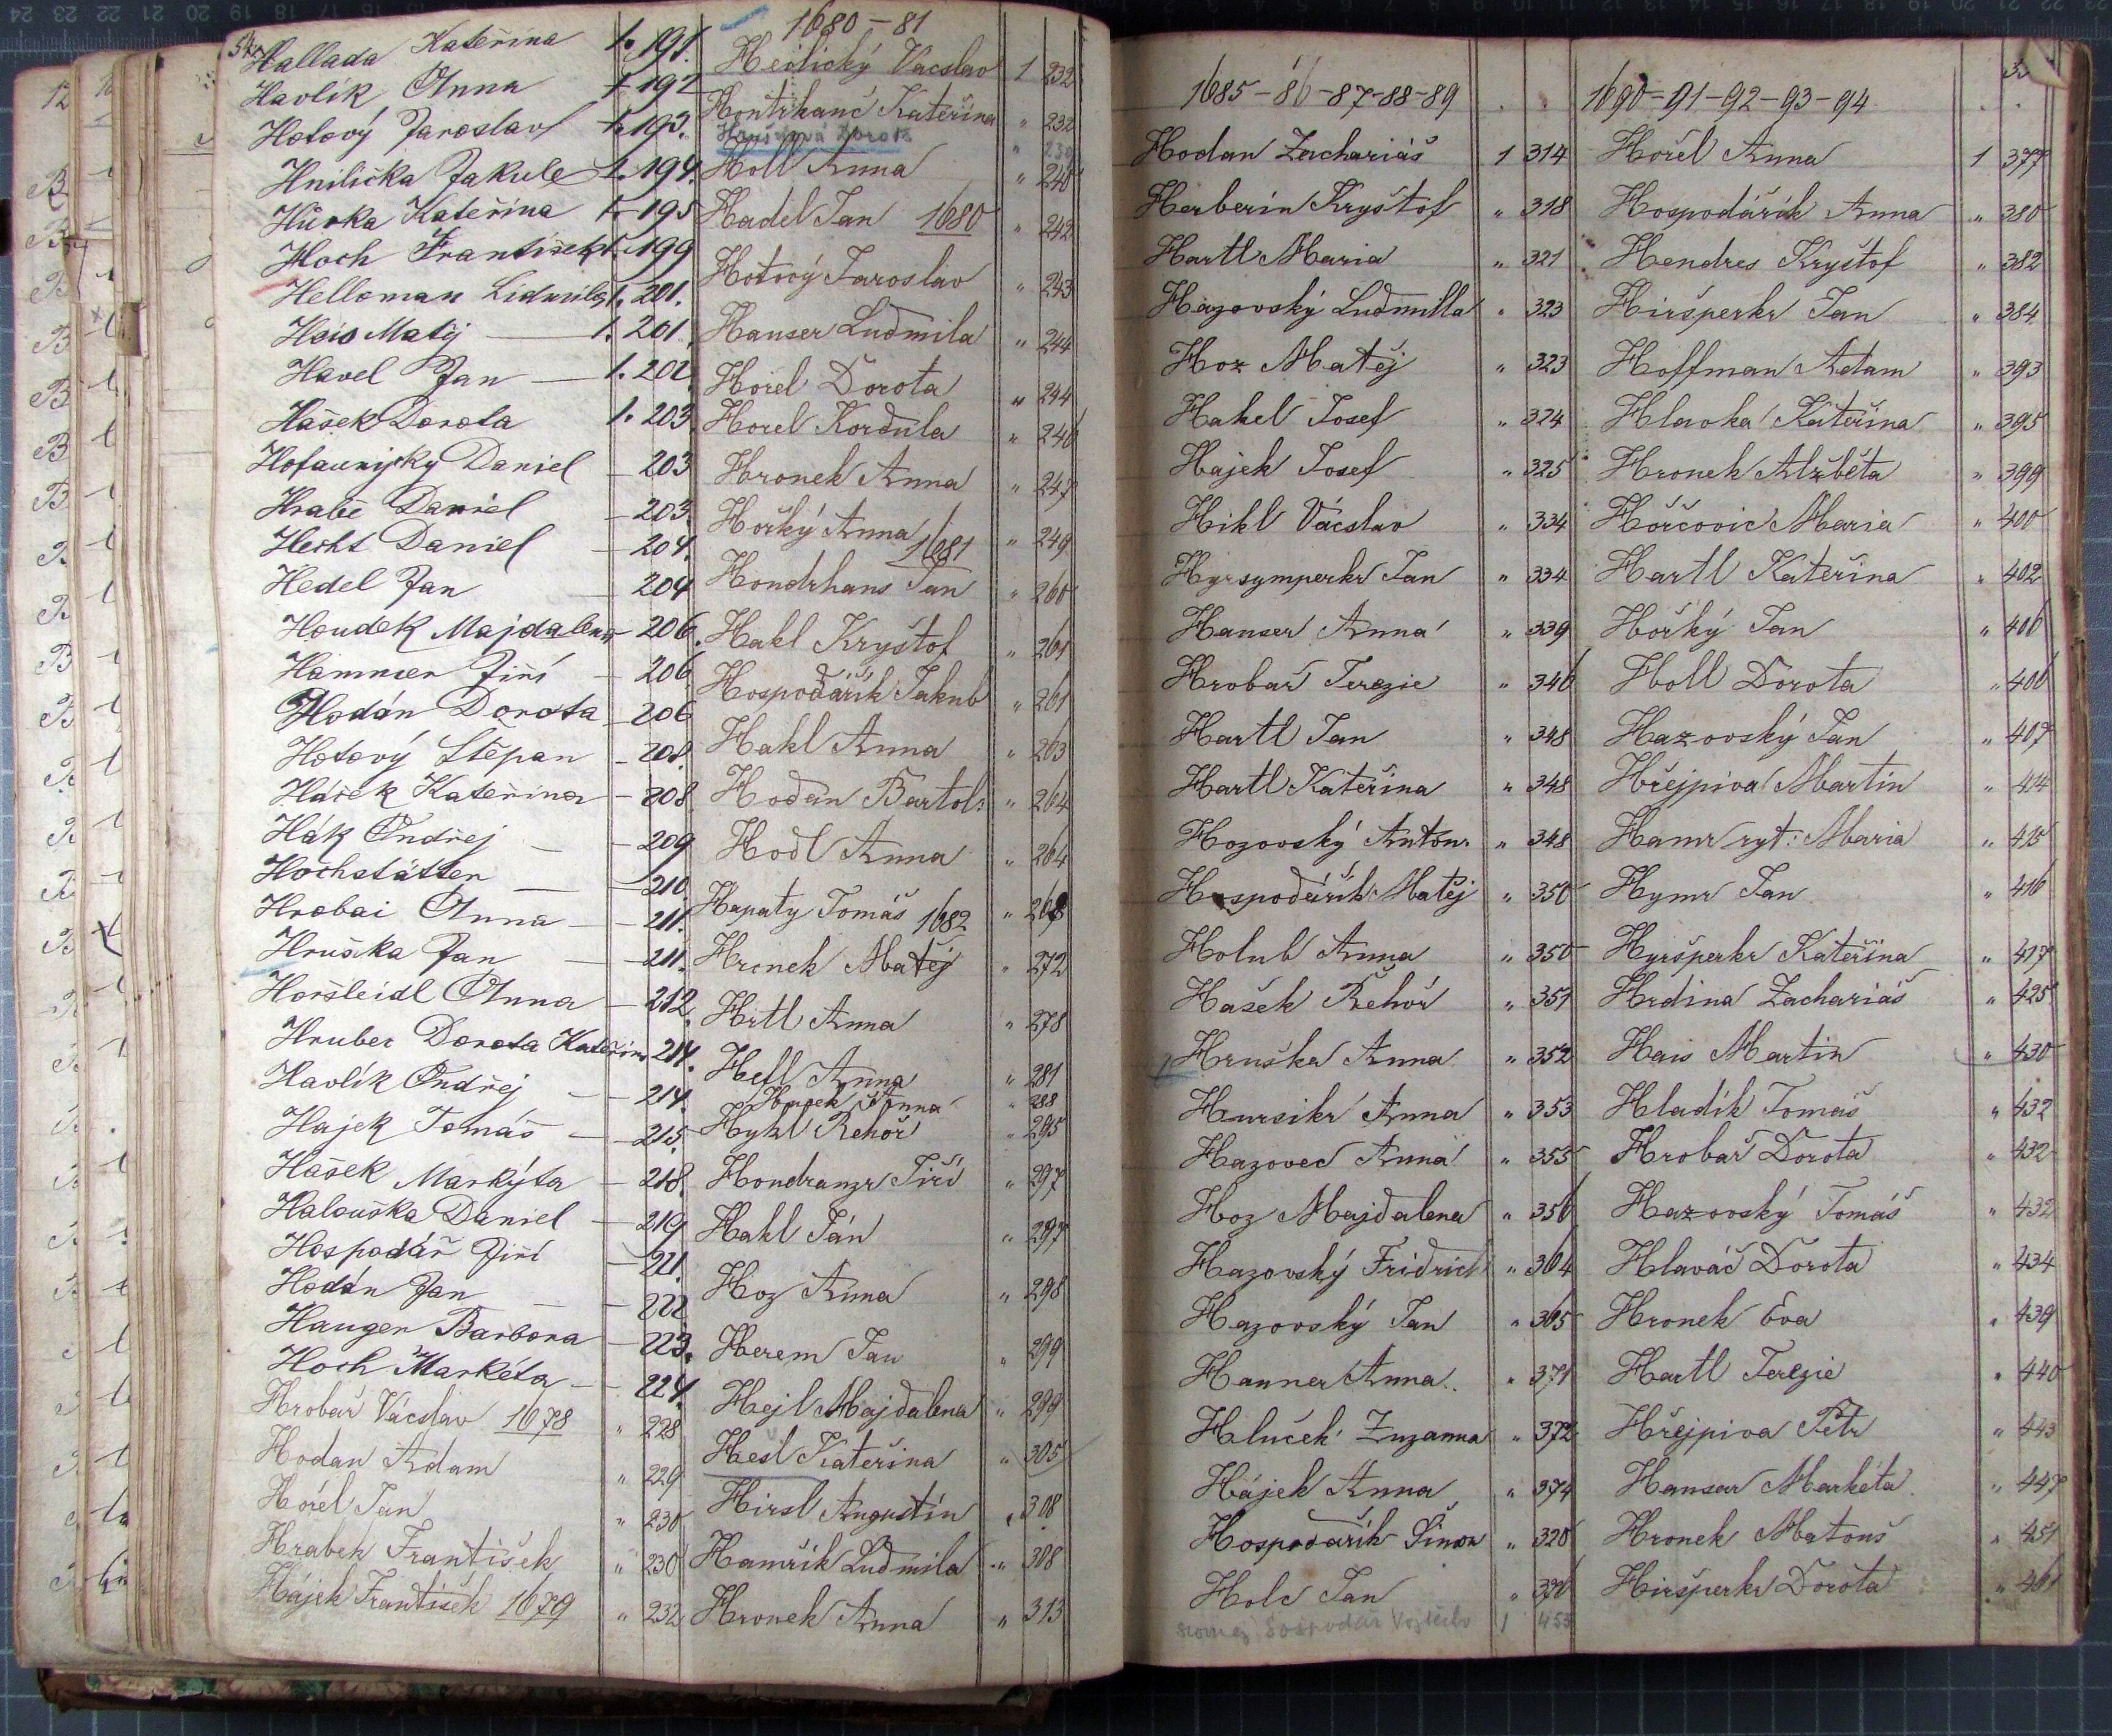 54
Hallada Kateřina 1. 191.
Havlík Anna 1. 192
Hotový Jaroslav 1. 193.
Hnilička Jakub 1. 194.
Hůrka Kateřina 1. 195
Hoch František 1. 199
Helloman Lidmila 1. 201.
Hais Matěj 1. 201.
Havel Jan 1. 202.
Hašek Dorota 1. 203.
Daniel 203
Hrabě Daniel 203.
Hecht Daniel 204.
Hedel Jan 204
Houdek Majdalena 206.
Hammer Jiří 206
Hodán Dorota 206
Hotový Štěpan 208.
Hášek Kateřina 208
Hák Ondřej 209
Hochstätter 210.
Hrobař Anna 211.
Hruška Jan 211.
Horšleidl Anna 212.
Hruber Dorota Kateřina 214.
Havlík Ondřej 214.
Hajek Tomáš 215.
Hašek Markýta 218.
Halouška Daniel 219
Hospodář Jiří 221.
Hodán Jan 222
Hauger Barbora 223.
Hoch Markéta 224.
Hrobař Vácslav 1678 " 228
Hodan Adam " 229
Hořel Jan " 230
Hrabek František " 230
Hájek František 1679 " 232
1680-81
Vacslav 1 232
Kateřina " 232
Holl Anna " 240
Hadel Jan 1680 " 242
Hotový Jaroslav " 243
Hanser Ludmila " 244
Hořel Dorota " 244
Horel Kordula " 246
Hronek Anna " 247
Hořký Anna 1681 " 249
Hondrhans Jan " 260
Hakl Kryštof " 261
Hospodářík Jakub " 261
Hakl Anna " 263
Hodan Bartol: " 264
Hodl Anna " 264
Hapaty Tomáš 1682 " 268
Hronek Matěj " 272
Hrtl Anna " 278
Hefl Anna " 281
Hašek Anna " 288
Hykl Řehoř " 295
Hondranzr Jiří " 297
Hakl Ján " 297
Hoz Anna " 298
Herem Jan " 299
Hejl Majdalena " 299
Hesl Kateřina " 305
Hirsl Augustin " 308
Hamřík Ludmila " 308
Hronek Anna " 313
1685-86-87-88-89
Hodan Zachariáš 1 314
Herberin Kryštof " 318
Hartl Maria " 321
Hazovský Ludmilla " 323
Hoz Matěj " 323
Hakel Josef " 324
Hajek Josef " 325
Hikl Vácslav " 334
Hyrsymperkr Jan " 334
Hanser Anna " 339
Hrobař Terezie " 346
Hartl Jan " 348
Hartl Kateřina " 348
Hozovský Anton. " 348
Hospodářík Matěj " 350
Holub Anna " 350
Hašek Řehoř " 351
Hruška Anna " 352
Hursikr Anna " 353
Hazovec Anna " 353
Hoz Majdalena " 356
Hazovský Fridrich " 364
Hazovský Jan " 365
Hanner Anna " 371
Hluček Zuzanna " 372
Hájek Anna " 374
Hospodářík Šimon " 320
Holc Jan " 376
Hospodář Vojtěch 1 453
1690-91-92-93-94
Hořel Anna 1 377
Hospodářík Anna " 380
Hendres Kryštof " 382
Hiršperkr Jan " 384
Hoffman Adam " 393
Hlavka Kateřina " 395
Hronek Alžběta " 399
Hořčovic Maria " 400
Hartl Kateřina " 402
Hořký Jan " 406
Holl Dorota " 406
Hazovský Jan " 407
Hřejpiva Martin " 414
Hamr ryt: Maria " 415
Hymr Jan " 416
Hyršperkr Kateřina " 417
Hrdina Zachariáš " 425
Hais Martin " 430
Hladík Tomáš " 432
Hrobař Dorota " 432
Hazovský Tomáš " 432
Hlaváč Dorota " 434
Hronek Eva " 439
Hartl Terezie " 440
Hřejpiva Petr " 443
Hansar Markéta " 447
Hronek Matouš " 451
Hiršperkr Dorota " 461